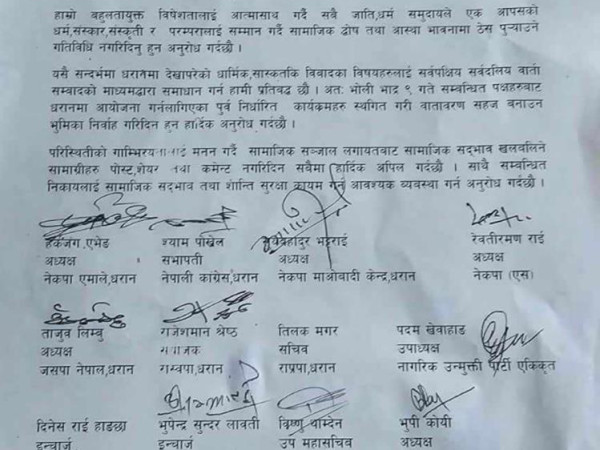 हाम्रो बहुलतायुक्त विषेशतालाई आत्मासाथ गर्दै सबै जाति,धर्म समुदायले एक आपसको
धर्म,संस्कार,संस्कृती र परम्परालाई सम्मान गर्दै सामाजिक द्वोष तथा आस्था भावनामा ठेस पुऱ्याउने
गतिविधि नगरिदिनु हुन अनुरोध गर्दछौ ।
यसै सन्दर्भमा धरानमा देखापरेको धार्मिक,सास्कतकि विवादका विषयहरुलाई सर्वपक्षिय सर्वदलिय वार्ता
सम्वादको माध्यमद्वारा समाधान गर्न हामी प्रतिवद्ध छौ । अतः भोली भाद्र ९ गते सम्वन्धित पक्षहरुबाट
धरानमा आयोजना गर्नलागिएका पुर्व निर्धारित कार्यकमहरु स्थगित गरी वातावरण सहज बनाउन
भुमिका निर्वाह गरिदिन हुन हार्दिक अनुरोध गर्दछौ ।
परिस्थितीको मनन गर्दै सामाजिक सञ्जाल लगायतबाट सामाजिक सद्भाव खलवलिने
सामाग्रीहरु पोस्ट,शेयर तथा कमेन्ट नगरिदिन सबैमा हार्दिक अपिल गर्दछौ । साथै सम्वन्धित
निकायलाई सामाजिक सद्भाव तथा शान्ति सुरक्षा कायम गर्न आवश्यक व्यवस्था गर्न अनुरोध गर्दछौ ।
श्याम पोखेल रेवतीरमण राई
अध्यक्ष सभापती अध्यक्ष अध्यक्ष
नेकपा एमाले,धरान नेपाली कांग्रेस,धरान नेकपा माओबादी केन्द्र,धरान नेकपा (एस)
ताजुव लिम्बु राजेशमान श्रेष्ठ तिलक मगर पदम खेवाहाङ
अध्यक्ष सचिव उपाध्यक्ष
जसपा नेपाल,धरान राप्रपा,धरान नागरिक उन्मुक्ती पार्टी एकिकृत
दिनेस राई हाङछा भुपेन्द्र सुन्दर लावती विष्णु थाम्देन भुपी कोयी
इन्चार्ज इन्चार्ज उप महासचिव अध्यक्ष